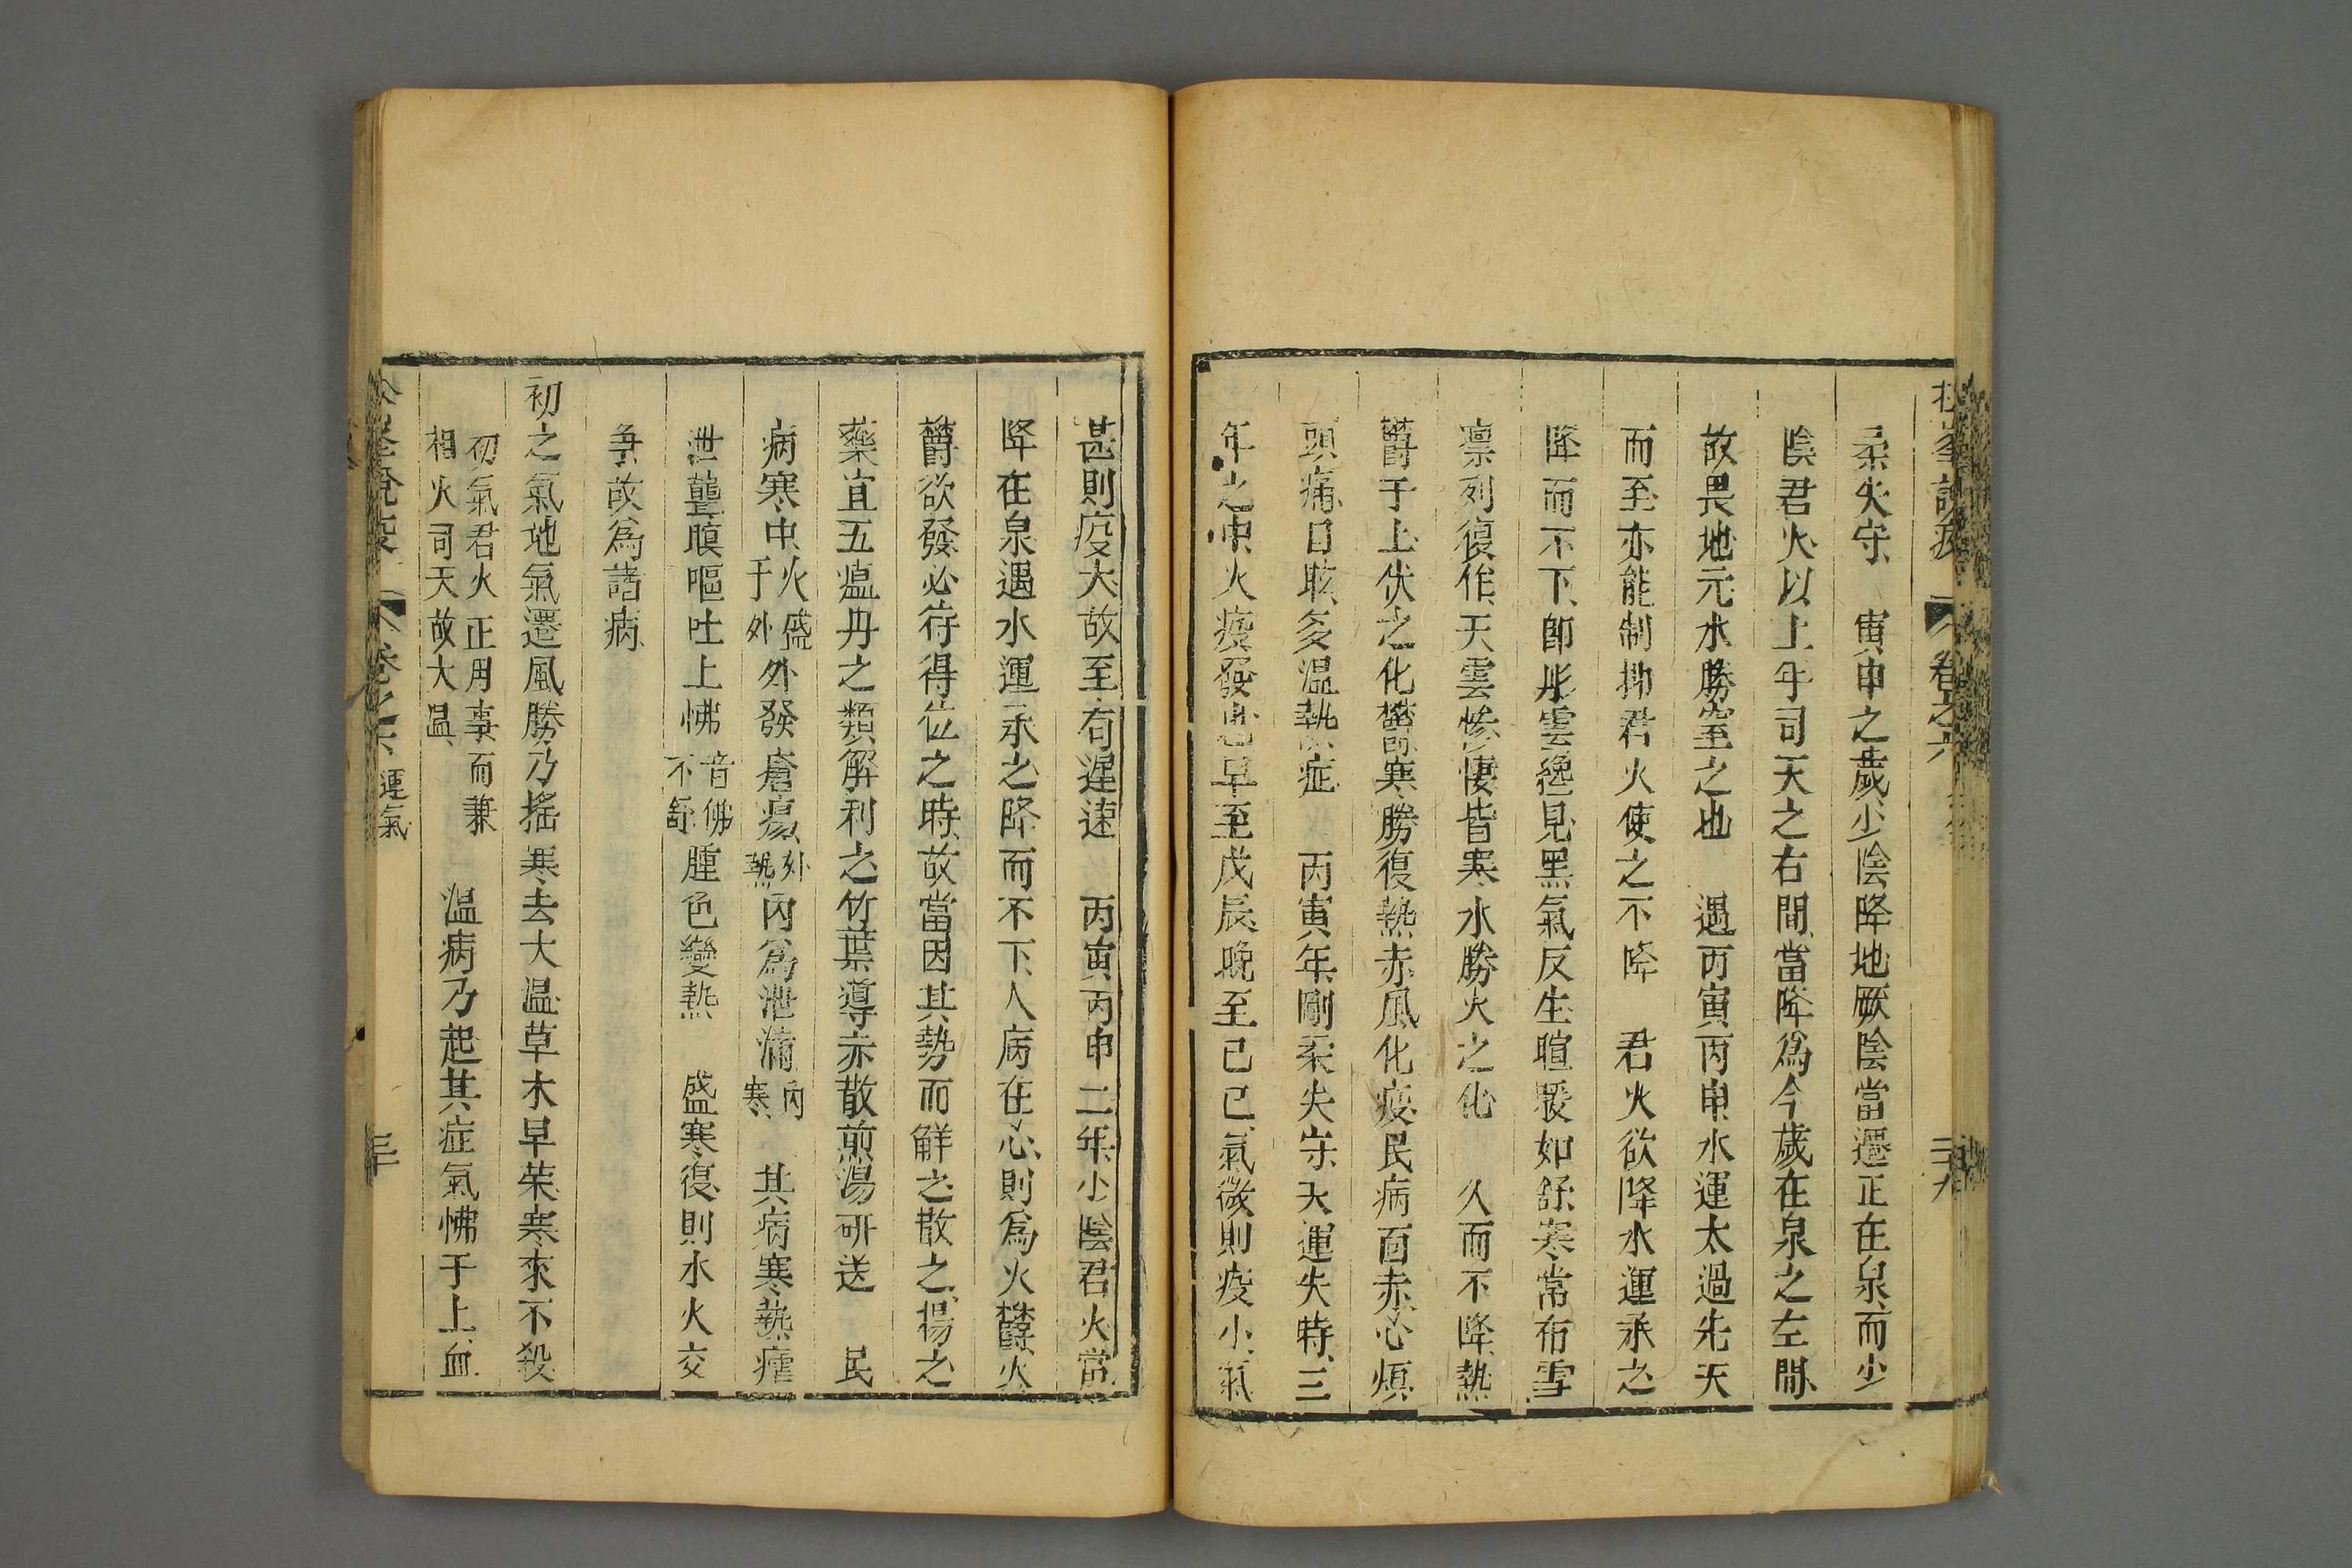 松峯說疫 卷之六 二十九
柔失守、 寅申之歲、少陰降地、厥陰當遷正在泉、而少
陰君火、以上年司天之右間、當降爲今歲在泉之左間、
故畏地元水勝窒之也 遇丙寅丙申、水運太過、先天
而至、亦能制抑君火、使之不降 君火欲降、水運承之、
降而不下、卽彤雲纔見、黑氣反生、暄暖如舒、寒常布雪、
凛冽復作、天雲慘悽、皆寒水勝火之化 久而不降、熱
欝于上、伏之化欝、寒勝復熱、赤風化疫、民病面赤心煩、
頭痛目眩、多温熱症 丙寅年、剛柔失守、天運失時、三
年之中、火疫發也、早至戊辰、晚至己巳、氣微則疫小、氣
甚則疫大、故至有遲速 丙寅丙申二年、少陰君火、當
降在泉、遇水運承之、降而不下、人病在心、則爲火欝、火
欝欲發、必待得位之時、故當因其勢而解之散之、揚之
藥宜五瘟丹之類解利之、竹葉導赤散煎湯研送 民
病寒中、火盛于外外發瘡瘍、外熱内爲泄滿内寒、 其病寒熱瘧
泄聾瞑嘔吐上怫音佛不舒腫色變熱 盛寒復則水火交
争、故爲諸病
初之氣、地氣遷、風勝乃搖、寒去大温、草木早榮、寒來不殺
初氣君火正用事、而兼相火司天、故大温、 温病乃起、其症氣怫于上、血
卷之六 運氣 三十